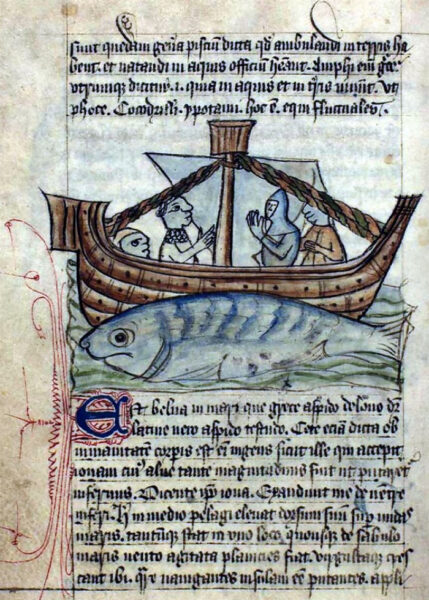 sunt quedam gen̄a pisciū dicta qd̛ ambulandi in terris ha
bent. et natandi in aquis officiū hn̄ant. Amphi eni gr̄e
vtrunque dicitur .i. quia in aquis et in tris uiuūt. Vt
phoce. Cocodrilli. ypotami. hoc ē. equi fluctuales.
Est belua in mari que grece aspido delone dr̄
latine uero aspido testudo. Cete eciā dicta ob
inmanitatē corpis est eī ingens sicut ille qui accepit
ionam cui᷒ aluus tante magnitudinis fuit ut putaret᷑
infernus. Dicente ip̄o iona. Exaudiuit me de uentre
inferi. H̛ in medio pelagi eleuat dorsum suū sup undas
maris. tantūque stat in uno loco quousque de sabulo
maris uento agitata planicies fiat. virgultaque cres
cant ibi. Qr̄e nauigantes insulam eē putantes. appli